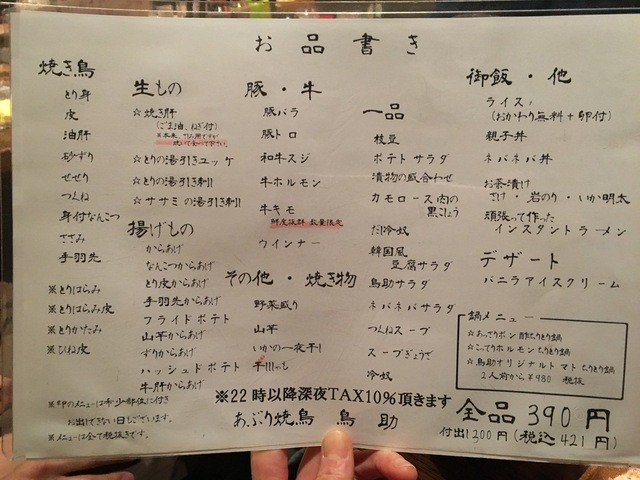 お品書き
焼き鳥
とり身
皮
油肝
砂ずり
せせり
つくね
身付なんこつ
ささみ
手羽先
※とりはらみ
※とりはらみ皮
※とりかたみ
※ひね皮
※印のメニューは希少部位に付き
お出しできない日もございます。
※メニューは全て税抜きです。
生もの
☆焼き肝
(ごま油、ねぎ付)
☆とりの湯引きユッケ
☆とりの湯引き刺し
☆ササミの湯引き刺し
揚げもの
からあげ
なんこつからあげ
とり皮からあげ
手羽先からあげ
フライドポテト
山芋からあげ
ずりからあげ
ハッシュドポテト
牛肝からあげ
豚・牛
豚バラ
豚トロ
和牛スジ
牛ホルモン
牛キモ
鮮度抜群 数量限定
ウインナー
その他・焼き物
野菜盛り
山芋
いかの一夜干し
一品
枝豆
ポテトサラダ
漬物の盛合わせ
カモロース肉の
黒こしょう
だし冷奴
韓国風
豆腐サラダ
鳥助サラダ
ネバネバサラダ
つくねスープ
スープぎょうざ
冷奴
御飯・他
ライス
(おかわり無料+卵付)
親子丼
ネバネバ丼
お茶漬け
さけ・岩のり・いか明太
頑張って作った
インスタントラーメン
デザート
バニラアイスクリーム
鍋メニュー
☆あっさりポン酢ちりとり鍋
☆こってりホルモンちりとり鍋
☆鳥助オリジナルトマトちりとり鍋
2人前から¥980 税抜
※22時以降深夜TAX10%頂きます
あぶり焼鳥 鳥助
全品390円
付出し300円(税込421円)